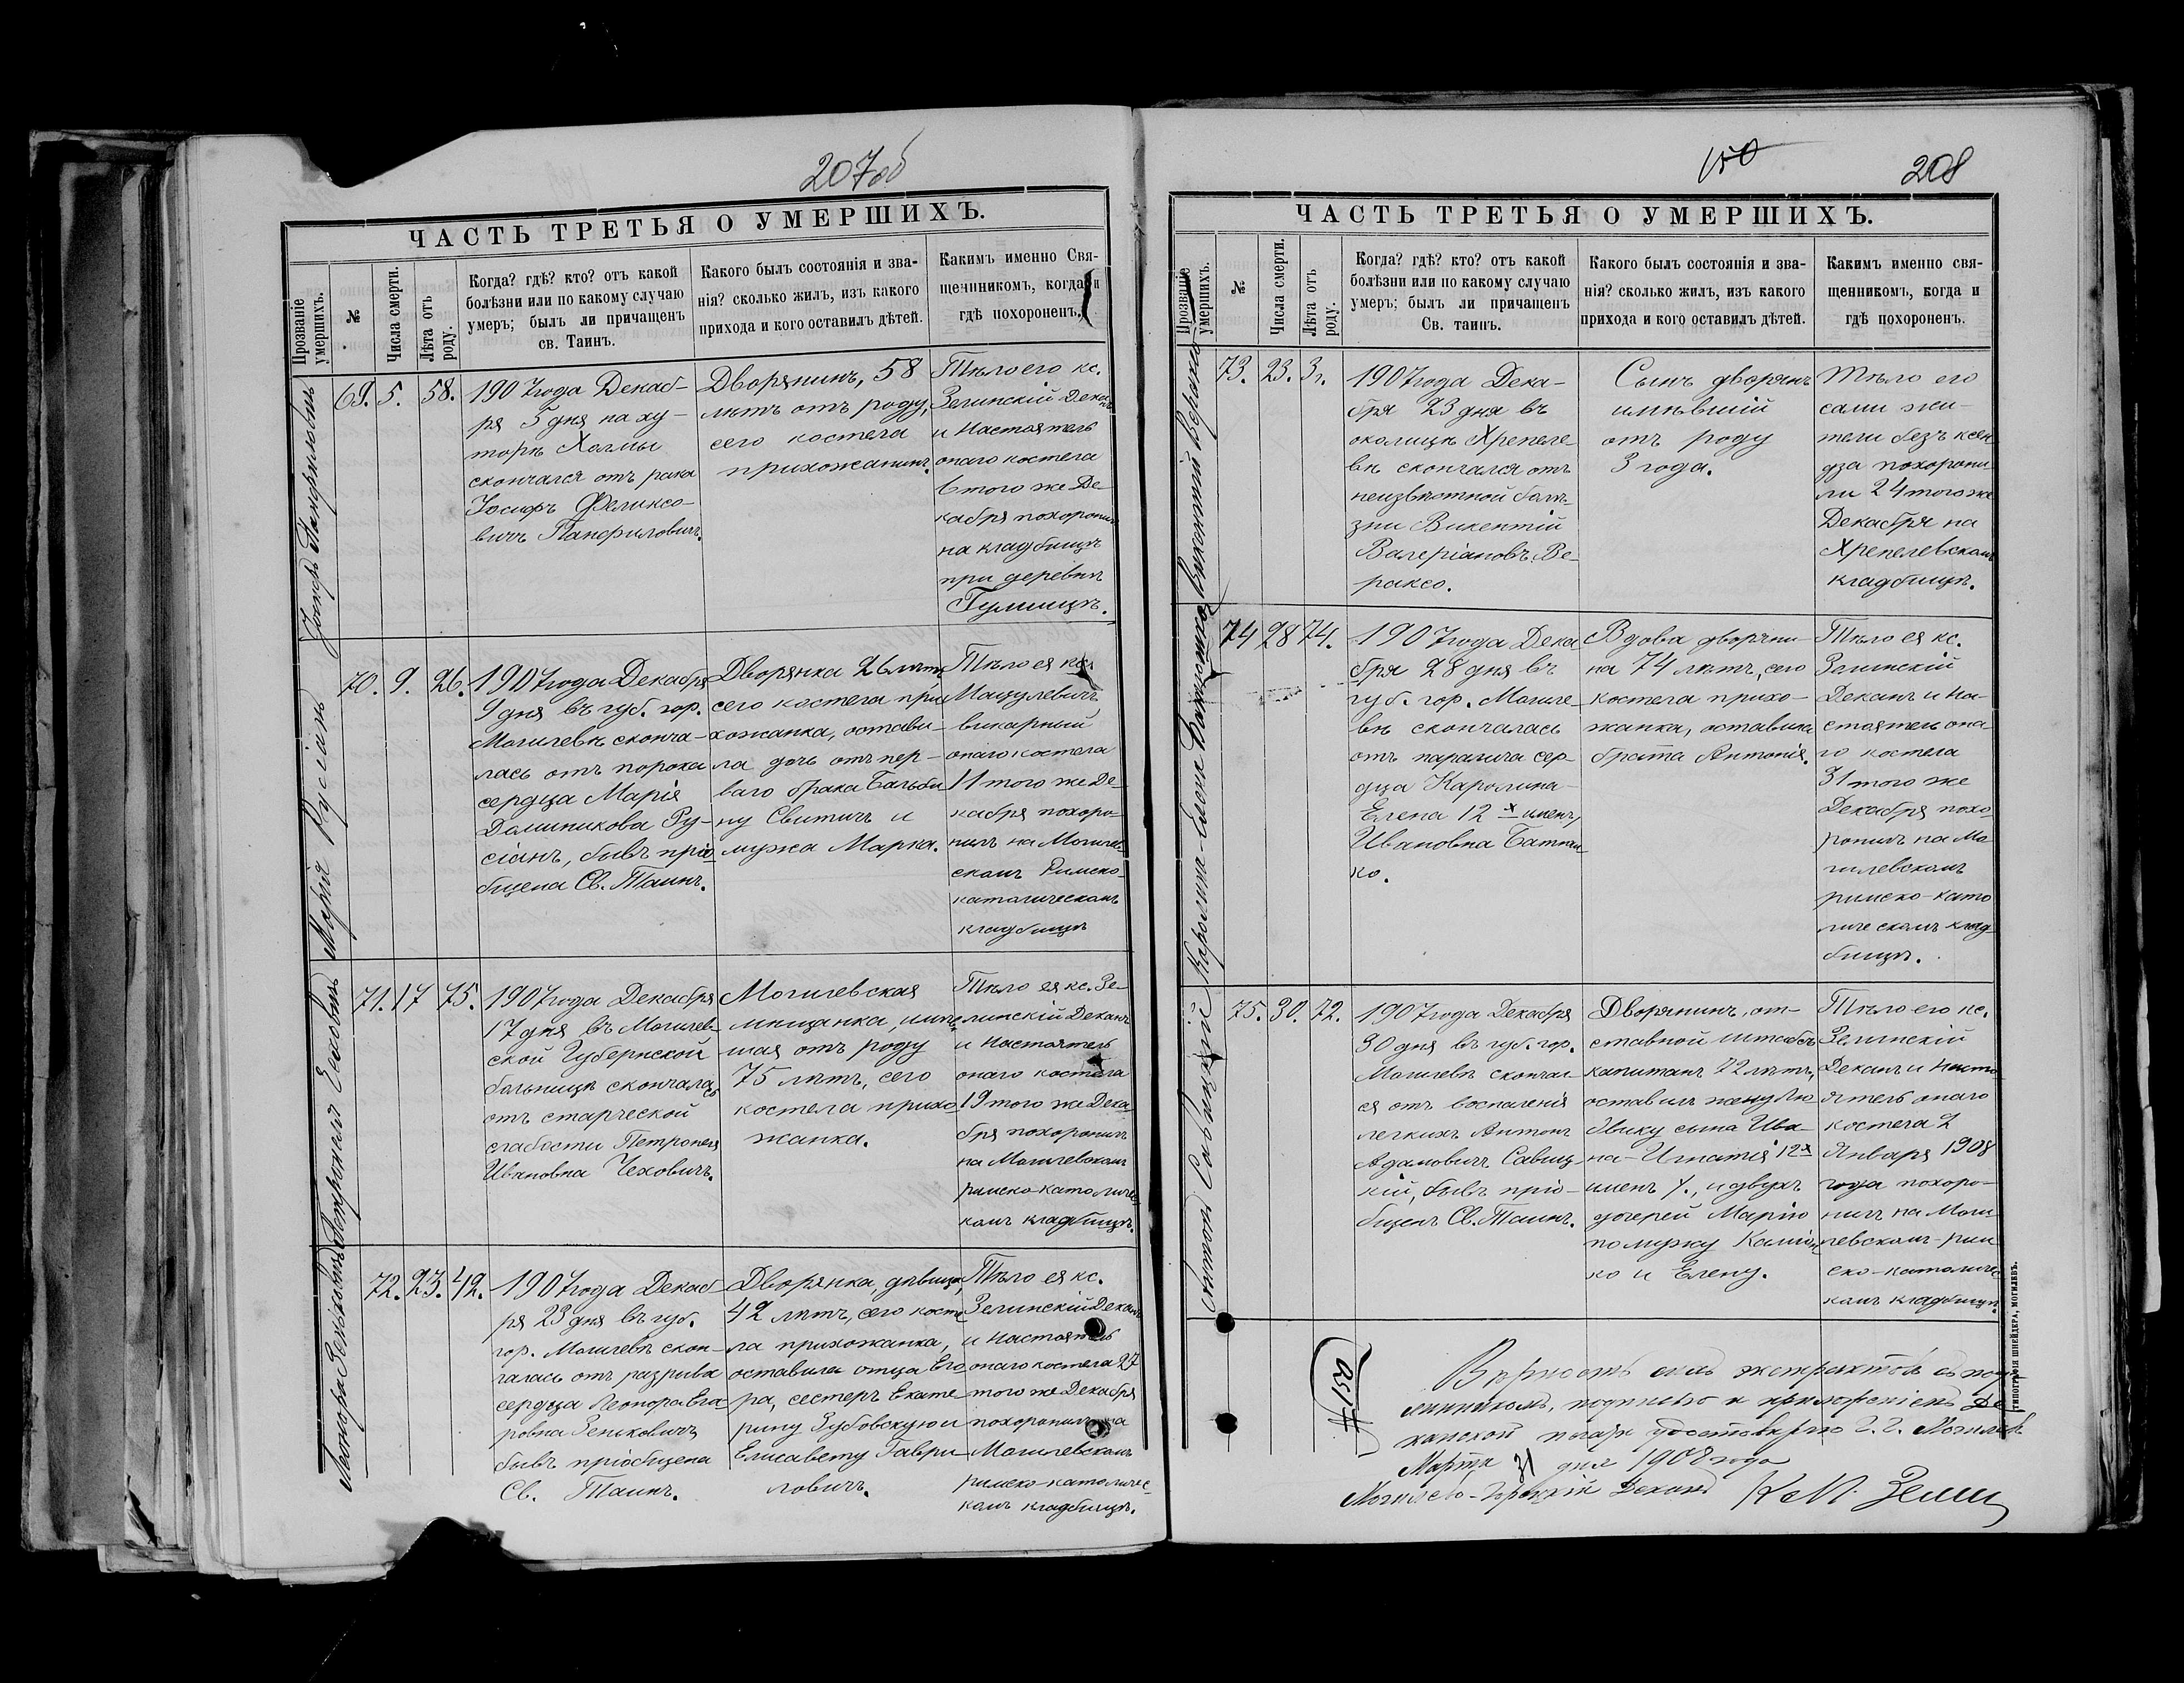 207об
ЧАСТЬ ТРЕТЬЯ О УМЕРШИХЪ.
Прозваніе умершихъ.
№
Числа смерти.
Лѣта отъ роду.
Когда? гдѣ? кто? отъ какой
болѣзни или по какому случаю
умеръ; былъ ли причащенъ
св. Таинъ.
Какого былъ состоянія и зва-
нія? сколько жилъ, изъ какого
прихода и кого оставилъ дѣтей.
Каким именно Свя-
щенникомъ, когда и
гдѣ похороненъ.
Іосифъ Панфиловичъ
69.
5.
58.
1907 года Декаб-
ря 5 дня на ху-
торѣ Холмы
скончался отъ рака
Іосифъ Феликсо-
вичъ Панфиловичъ.
Дворянинъ, 58
лѣтъ отъ роду,
сего костела
прихожанинъ.
Тѣло его кс.
Зелинскій Деканъ
и Настоятель
онаго костела
6 того же Де-
кабря похоронилъ
на кладбищѣ
при деревнѣ
Гулищѣ.
Марія Русіянъ
70.
9.
26.
1907 года Декабря
9 дня въ губ. гор.
Могилевѣ сконча-
лась отъ порока
сердца Марія
Доминикова Ру-
сіянъ, бывъ пріо-
бщена Св. Таинъ.
Дворянка 26 лѣтъ
сего костела при-
хожанка, остави-
ла дочь отъ пер-
ваго брака Бальби-
ну Свитичъ и
мужа Марка.
Тѣло ея кс.
Мацулевичъ
викарный
онаго костела
11 того же Де-
кабря похоро-
нилъ на Могилев-
скомъ Римско-
католическомъ
кладбищѣ
Петронеля Чеховичъ
71.
17
75.
1907 года Декабря
17 дня въ Могилев-
ской Губернской
больницѣ скончалась
отъ старческой
слабости Петронеля
Ивановна Чеховичъ.
Могилевская
мѣщанка, имѣв-
шая отъ роду
75 лѣтъ, сего
костела прихо-
жанка.
Тѣло ея кс. Зе-
линскій Деканъ
и Настоятель
онаго костела
19 того же Дека-
бря похоронилъ
на Могилевскомъ
римско-католичес-
комъ кладбищѣ.
Леонора Зеньковичъ
72.
23.
42.
1907 года Декаб-
ря 23 дня въ губ.
гор. Могилевѣ скон-
чалась отъ разрыва
сердца Леонора Его-
ровна Зеньковичъ
бывъ пріобщена
Св. Таинъ.
Дворянка, дѣвица,
42 лѣтъ, сего косте-
ла прихожанка,
оставила отца Его-
ра, сестеръ Екате-
рину Зубовскую и
Елисавету Гаври-
ловичъ.
Тѣло ея кс.
Зелинскій Деканъ
и Настоятель
онаго костела 27
того же Декабря
похоронилъ на
Могилевскомъ
римско-католичес-
комъ кладбищѣ.
150
208
ЧАСТЬ ТРЕТЬЯ О УМЕРШИХЪ.
Прозваніе умершихъ.
№
Числа смерти.
Лѣта отъ роду.
Когда? гдѣ? кто? отъ какой
болѣзни или по какому случаю
умеръ; былъ ли причащенъ
Св. таинъ.
Какого былъ состоянія и зва-
нія? сколько жилъ, изъ какого
прихода и кого оставилъ дѣтей.
Какимъ именно свя-
щенникомъ, когда и
гдѣ похороненъ.
Викентій Вераксо
73.
23.
3 г.
1907 года Дека-
бря 23 дня въ
околицѣ Хрепеле-
вѣ скончался отъ
неизвѣстной болѣ-
зни Викентій
Валеріановъ Ве-
раксо.
Сынъ дворян.
имѣвшій
отъ роду
3 года.
Тѣло его
сами жи-
тели безъ ксен-
дза похорони-
ли 24 того же
Декабря на
Хрепелевскомъ
кладбищѣ.
Каролина-Елена
74
28
74.
1907 года Дека-
бря 28 дня въ
губ. гор. Могиле-
вѣ скончалась
отъ паралича сер-
дца Каролина-
Елена 12 х именъ,
Ивановна
ко.
Вдова дворяни-
на 74 лѣтъ, сего
костела прихо-
жанка, оставила
брата Антонія.
Тѣло ея кс.
Зелинскій
Деканъ и На-
стоятель она-
го костела
31 того же
Декабря похо-
ронилъ на Мо-
гилевскомъ
римско-като-
лическомъ клад-
бищѣ.
Антонъ Савицкій
75.
30.
72.
1907 года Декабря
30 дня въ губ. гор.
Могилевѣ скончал-
ся отъ воспаленія
легкихъ Антонъ
Адамовичъ Савиц-
кій, бывъ пріо-
бщенъ Св. Таинъ.
Дворянинъ, от-
ставной штабсъ
капитанъ 72 лѣтъ,
оставилъ жену Лю-
двику сына Ива-
на-Игнатія 12х
именъ, и двухъ
дочерей Марію
по мужу
ко и Елену.
Тѣло его кс.
Зелинскій
Деканъ и Насто-
ятель онаго
костела 2
Января 1908
года похоро-
нилъ на Моги-
левскомъ рим-
ско-католичес-
комъ кладбищѣ.
Вѣрность сего экстракта съ под-
линникомъ, подписью и приложеніемъ Де-
канской печати удостовѣряю г. г. Могилевъ
Марта 31 дня 1908 года
Могилево-Горецкій Деканъ
ТИПОГРАФІЯ ШНЕЙДЕРА, МОГИЛЕВЪ.